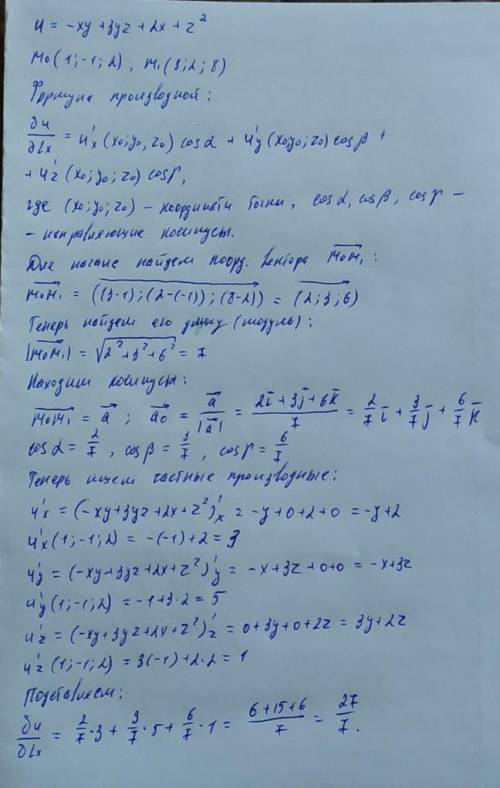 u = -xy + 3yz + 2x + z²
M₀(1; -1; 2), M₁(3; 2; 8)
Формула производной:
∂u/∂lx = u'x (x₀; y₀; z₀) cosα + u'y (x₀; y₀; z₀) cosβ +
+ u'z (x₀; y₀; z₀) cosγ,
где (x₀; y₀; z₀) – координаты точки, cosα, cosβ, cosγ –
– направляющие косинусы.
Для начала найдем коорд. вектора M₀M₁:
M₀M₁ = ((3-1); (2-(-1)); (8-2)) = (2; 3; 6)
Теперь найдем его длину (модуль):
|M₀M₁| = √(2² + 3² + 6²) = 7
Находим косинусы:
M₀M₁ = a; a₀ = a/|a| = (2i + 3j + 6k)/7 = 2/7 i + 3/7 j + 6/7 k
cosα = 2/7, cosβ = 3/7, cosγ = 6/7
Теперь ищем частные производные:
u'x = (-xy + 3yz + 2x + z²)'x = -y + 0 + 2 + 0 = -y + 2
u'x (1; -1; 2) = -(-1) + 2 = 3
u'y = (-xy + 3yz + 2x + z²)'y = -x + 3z + 0 + 0 = -x + 3z
u'y (1; -1; 2) = -1 + 3·2 = 5
u'z = (-xy + 3yz + 2x + z²)'z = 0 + 3y + 0 + 2z = 3y + 2z
u'z (1; -1; 2) = 3(-1) + 2·2 = 1
Подставляем:
∂u/∂lx = 2/7·3 + 3/7·5 + 6/7·1 = (6+15+6)/7 = 27/7.